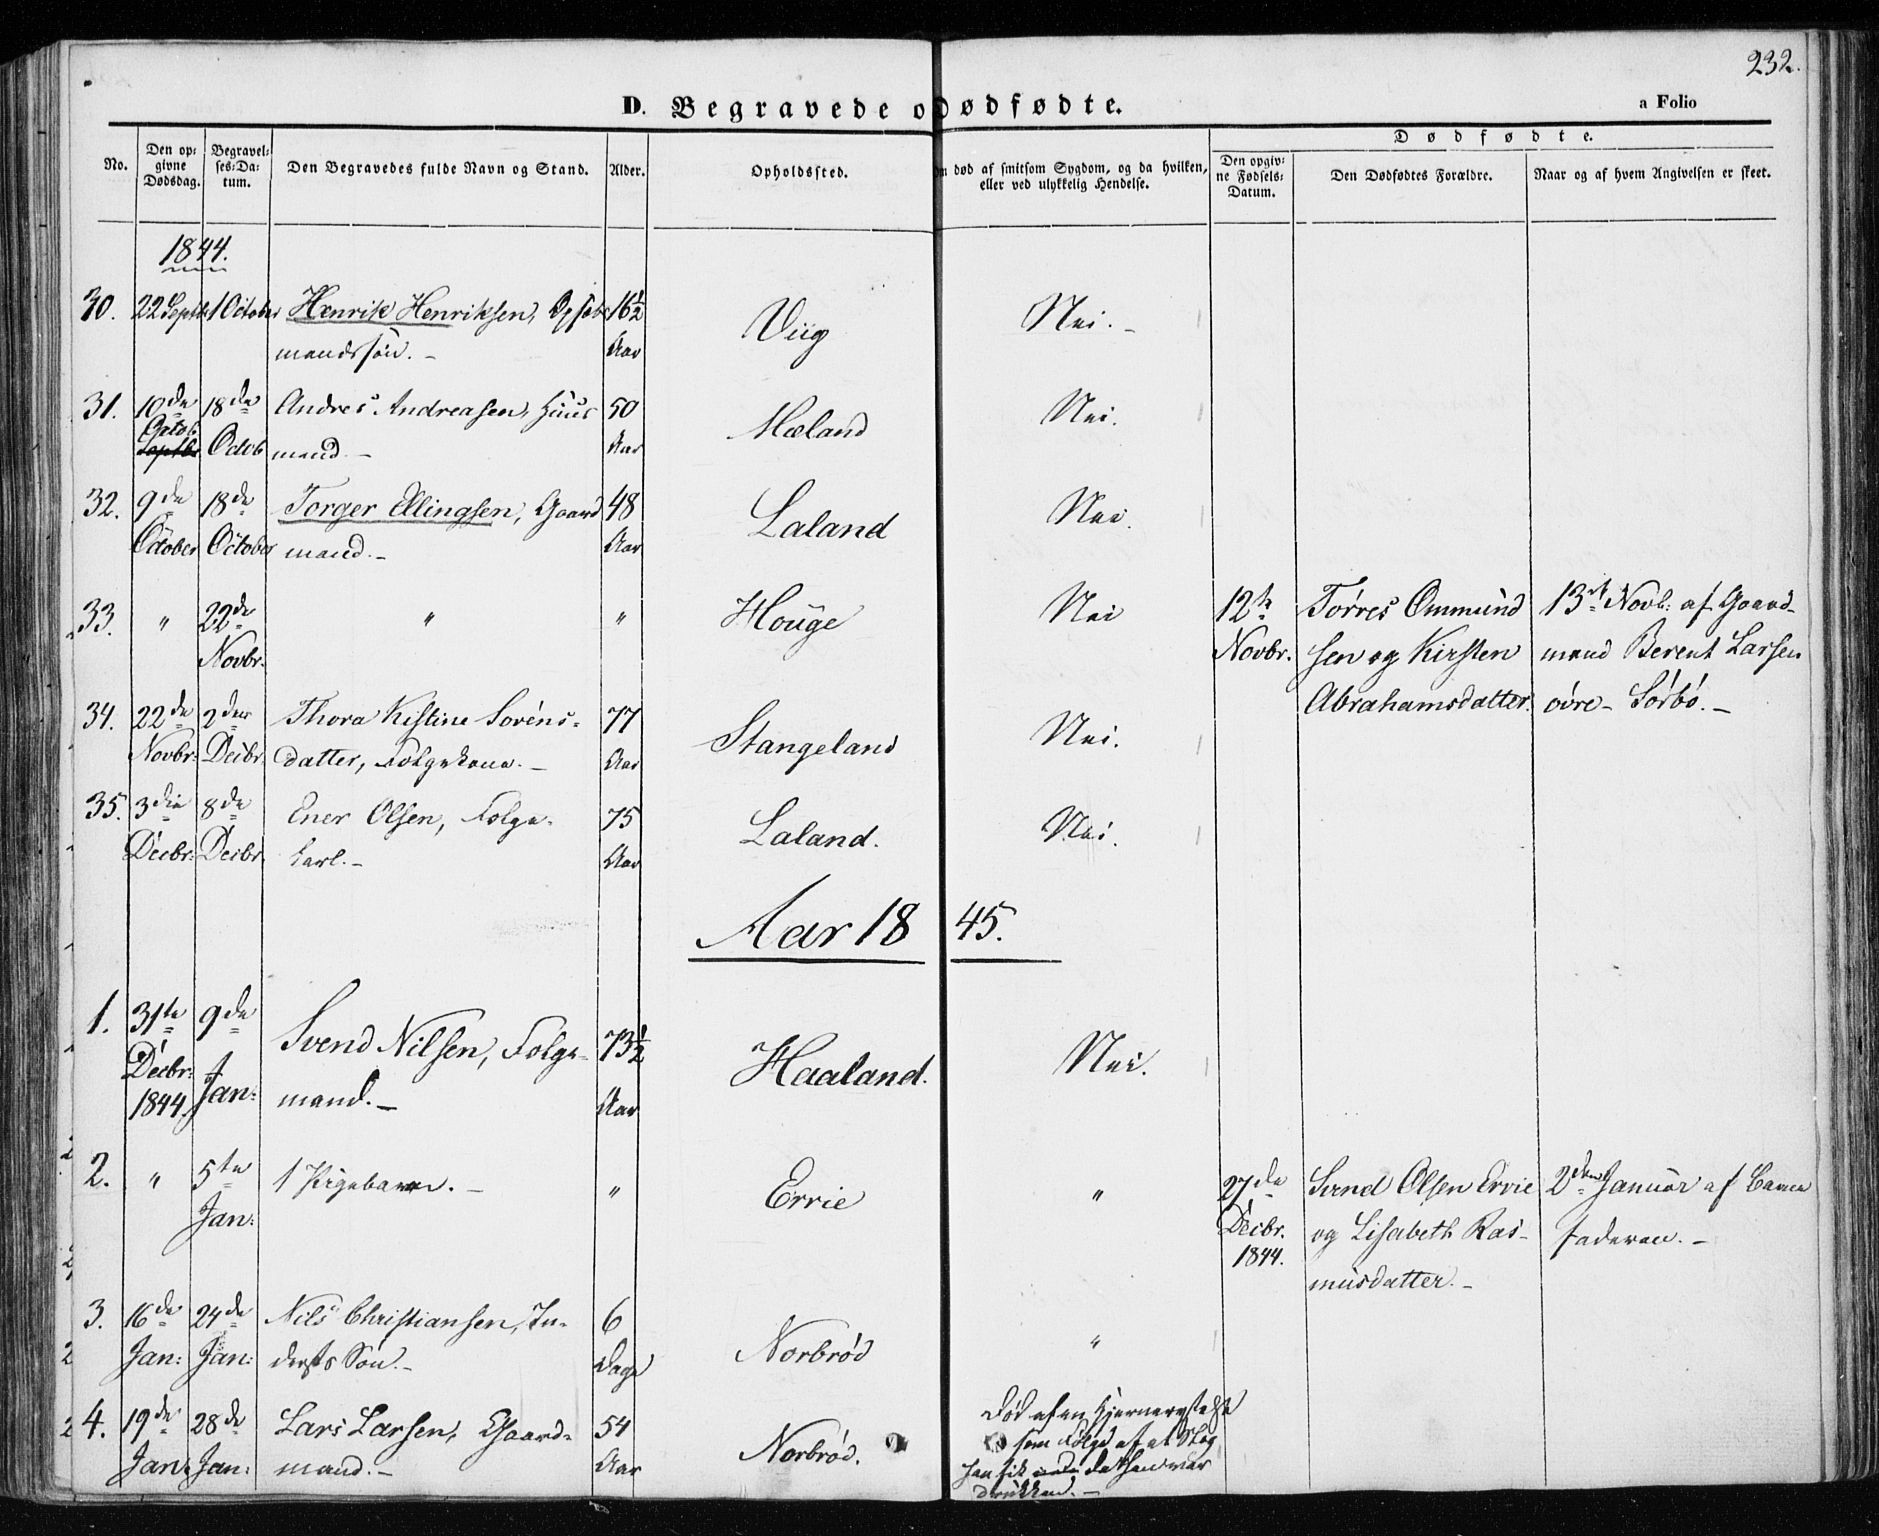 232.
D. Begravede o dødfødte.
a Folio
No.
Den opgivne Dødsdag.
Begravelses-Datum.
Den Begravedes fulde Navn og Stand.
Alder.
Opholdssted.
død af smitsom Sygdom, og da hvilken,
eller ved ulykkelig Hendelse.
Dødfødte.
Den opgivne Fødsels-Datum.
Den Dødfødtes Forældre.
Naar og af hvem Angivelsen er skeet.
1844.
30. 22 Septb 1 October Henrik Henriksen, 16½ Viig Nei. -
mandssøn. - Aar
31. 10de 18de Andres Andreasen, Huus 50 Mæland Nei.
Octob. Septbr Octob mand. - Aar
32. 9de 18de Torger Ellingsen, Gaard 48 Laland Nei.
October October mand. - Aar
33. " 22de " " Houge Nei 12te Torres Ommund 13de Novb: af Gaard-
Novbr. Novbr. sen og Kirsten mand Berent Larsen
Abrahamsdatter. øvre - Sørbø. -
34. 22de 2den Thora Kistine Sørens- 77 Stangeland Nei.
Novbr. Decbr. datter, Folgekone. - Aar
35. 3die 8de Ener Olsen, Folge- 75 Laland. Nei.
Decbr. Decbr. karl. - Aar
Aar 1845.
1. 31te 9de Svend Nilsen, Folge- 73½ Haaland. Nei.
Decbr: 1844. Jan: mand. - Aar
2. " 5te 1 Pigebarn. - " Errie " 27de Svend Olsen Ervie 2den Januar af Barne
Jan: Decbr. og Lisabeth Ras- faderen. -
1844. musdatter. -
3. 16de 24de Nils Christiansen, In- 6 Norbrød "
Jan: Jan: dersts Søn. - Dage
4. 19de 28de Lars Larsen, Gaard- 54 Norbrød. Død af en Hjernerystelse
Jan: Jan: mand. - Aar som Følge af et Slag
han fik da han var
drukken. -